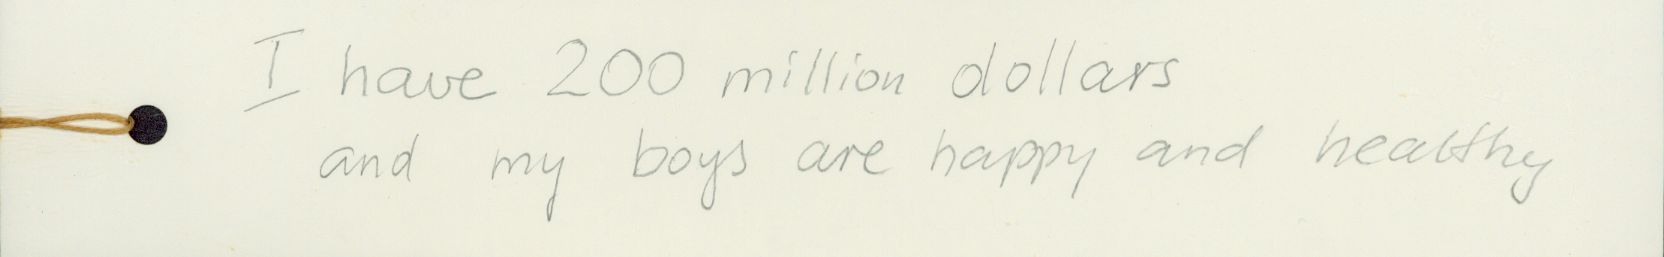 I have 200 million dollars
and my boys are happy and healthy